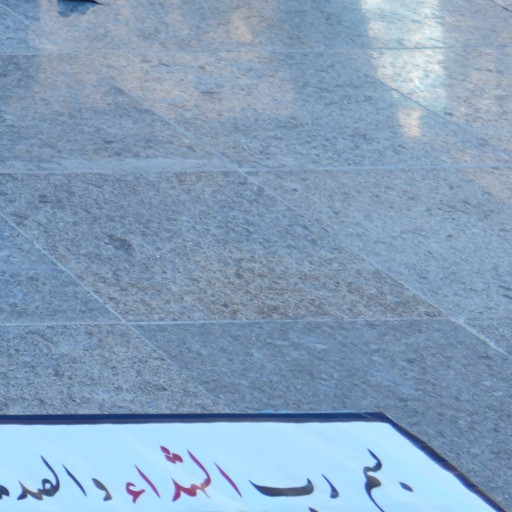 بسم رب الشهداء والصد